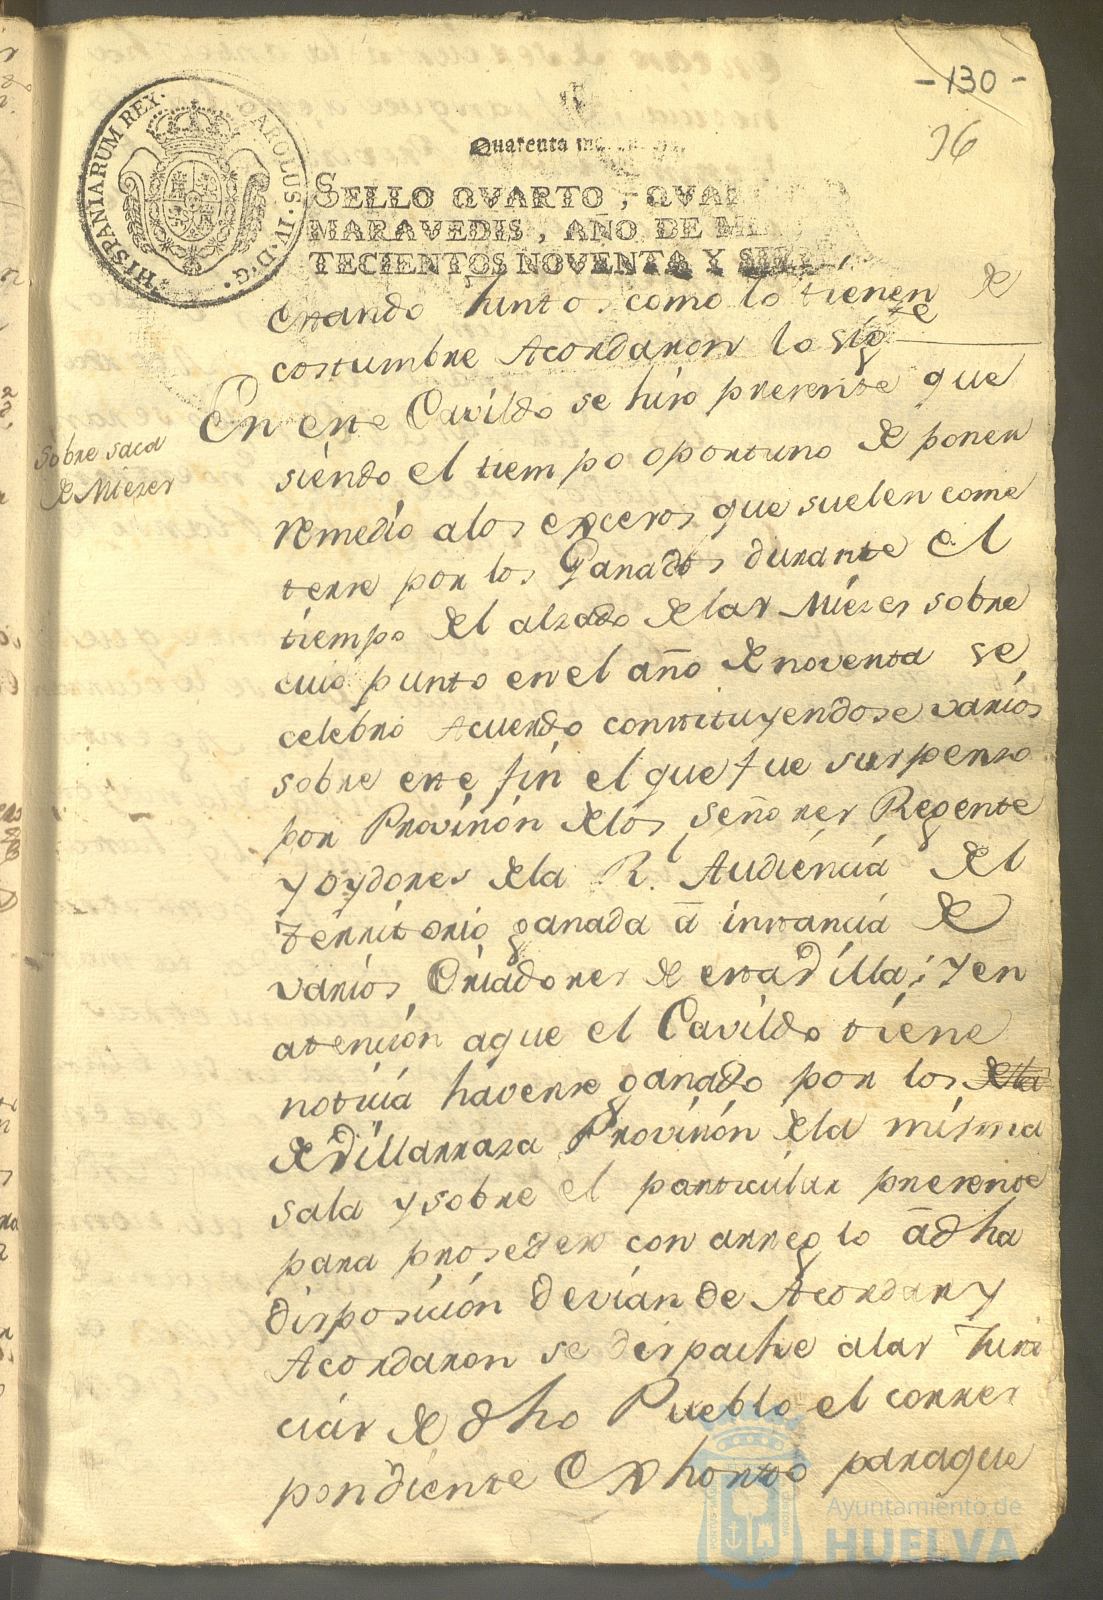 -130-
96
HISPANIARUM REX· CAROLUS·IV·D·G·
Quarenta
SELLO QVARTO, QVA
MARAVEDIS, AÑO DE MI
TECIENTOS NOVENTA Y SIE
estando Juntos como lo tienen de
costumbre Acordaron lo sigte
En este Cavildo se hizo presente que
Sobre saca
de Miezes
siendo el tiempo oportuno de poner
remedio a los excesos que suelen come
terse por los Ganados durante el
tiempo del alzado de las Miezes sobre
cuio punto en el año de noventa se
celebró Acuerdo constituyendose varios
sobre este fin el que fue suspenso
por Provision de los Señores Regente
y oydores de la Rl. Audiencia del
Territorio ganada ā instancia de
varios Criadores de esta Villa; y en
atencion aque el Cavildo tiene
noticia haverse ganado por los desta
de Villarrasa Provision de la misma
sala y sobre el particular presente
para proseder con arreglo ā dha
disposicion devian de Acordar y
Acordaron se despache alas Justi
cias de dho Pueblo el corres
pondiente Exhorto paraque
Ayuntamiento de
HUELVA